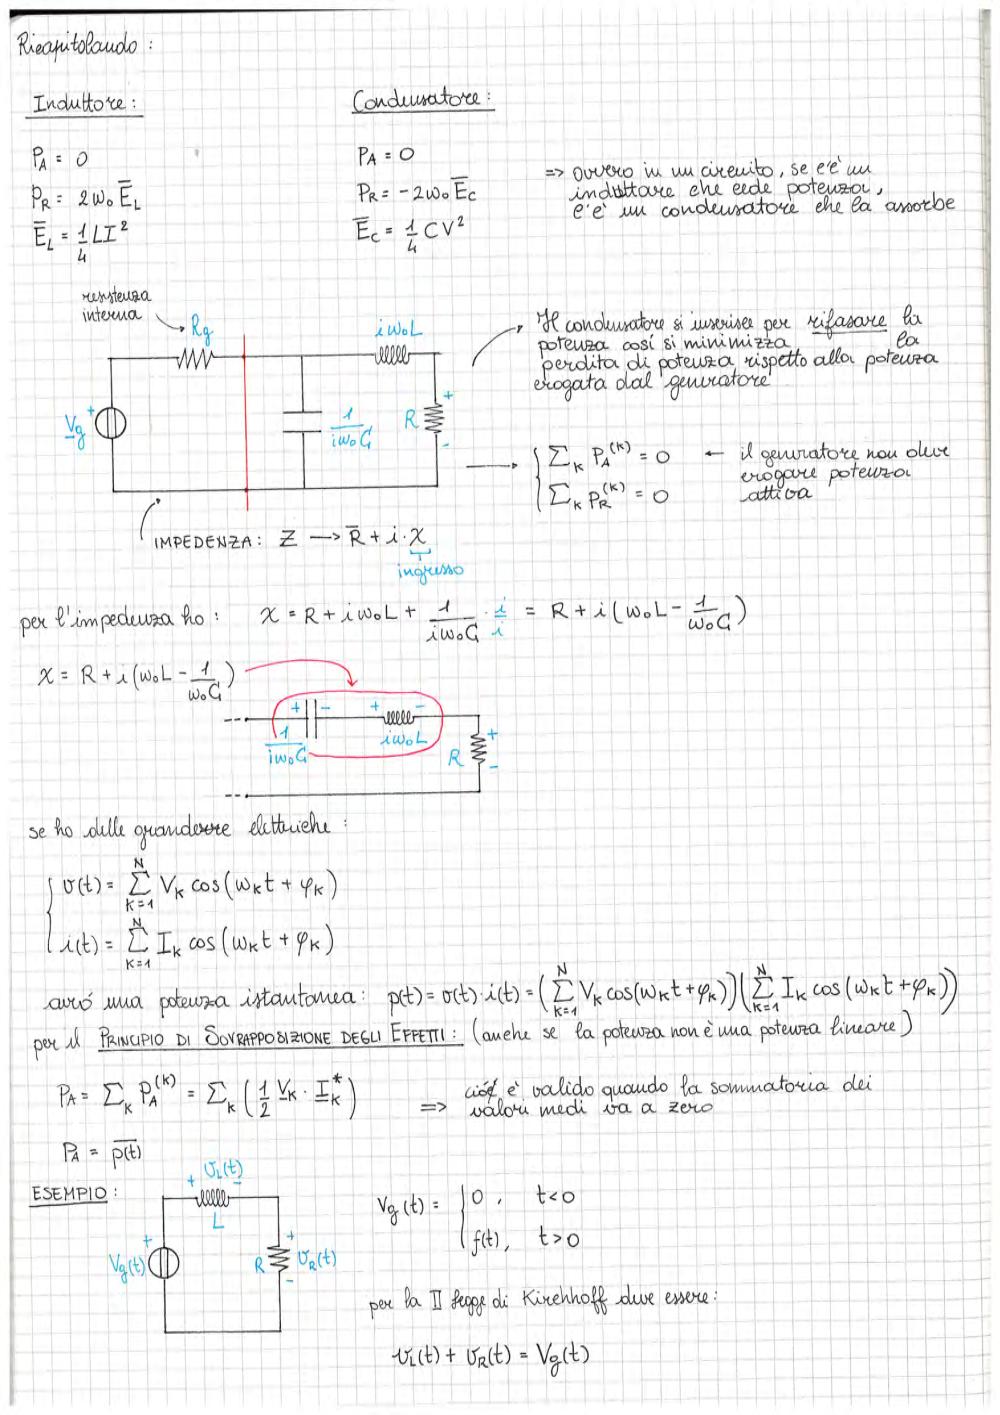 Ricapitolando :
Induttore :
P_A = 0
P_R = 2ω₀ E̅_L
E̅_L = 1/4 LI²
Condensatore :
P_A = 0
P_R = -2ω₀ E̅_C
E̅_C = 1/4 CV²
=> ovvero in un circuito, se c'è un
induttore che cede potenza,
c'è un condensatore che la assorbe
resistenza
interna
Rg
iω₀L
+
Vg
1/(iω₀C)
R
+
-
Il condensatore si inserisce per rifasare la
potenza così si minimizza la
perdita di potenza rispetto alla potenza
erogata dal generatore
{ Σ_K P_A^(K) = 0 ← il generatore non deve
erogare potenza
attiva
Σ_K P_R^(K) = 0
IMPEDENZA: Z → R̅ + i·χ
ingresso
per l'impedenza ho : χ = R + iω₀L + 1/(iω₀C) · i/i = R + i(ω₀L - 1/(ω₀C))
χ = R + i(ω₀L - 1/(ω₀C))
+ - + -
1/(iω₀C) iω₀L
R
+
-
se ho delle grandezze elettriche :
{ v(t) = Σ_{K=1}^{N} V_K cos(ω_K t + φ_K)
i(t) = Σ_{K=1}^{N} I_K cos(ω_K t + φ_K)
avrò una potenza istantanea: p(t) = v(t)·i(t) = (Σ_{K=1}^{N} V_K cos(ω_K t + φ_K))(Σ_{K=1}^{N} I_K cos(ω_K t + φ_K))
per il PRINCIPIO DI SOVRAPPOSIZIONE DEGLI EFFETTI : (anche se la potenza non è una potenza lineare)
P_A = Σ_K P_A^(K) = Σ_K (1/2 V_K · I_K*) => ciò è valido quando la sommatoria dei
valori medi va a zero
P_A = p̅(̅t̅)̅
ESEMPIO :
+ v_L(t) -
L
+
Vg(t)
R
+
v_R(t)
-
Vg(t) = { 0 , t<0
f(t), t>0
per la II legge di Kirchhoff deve essere :
v_L(t) + v_R(t) = Vg(t)